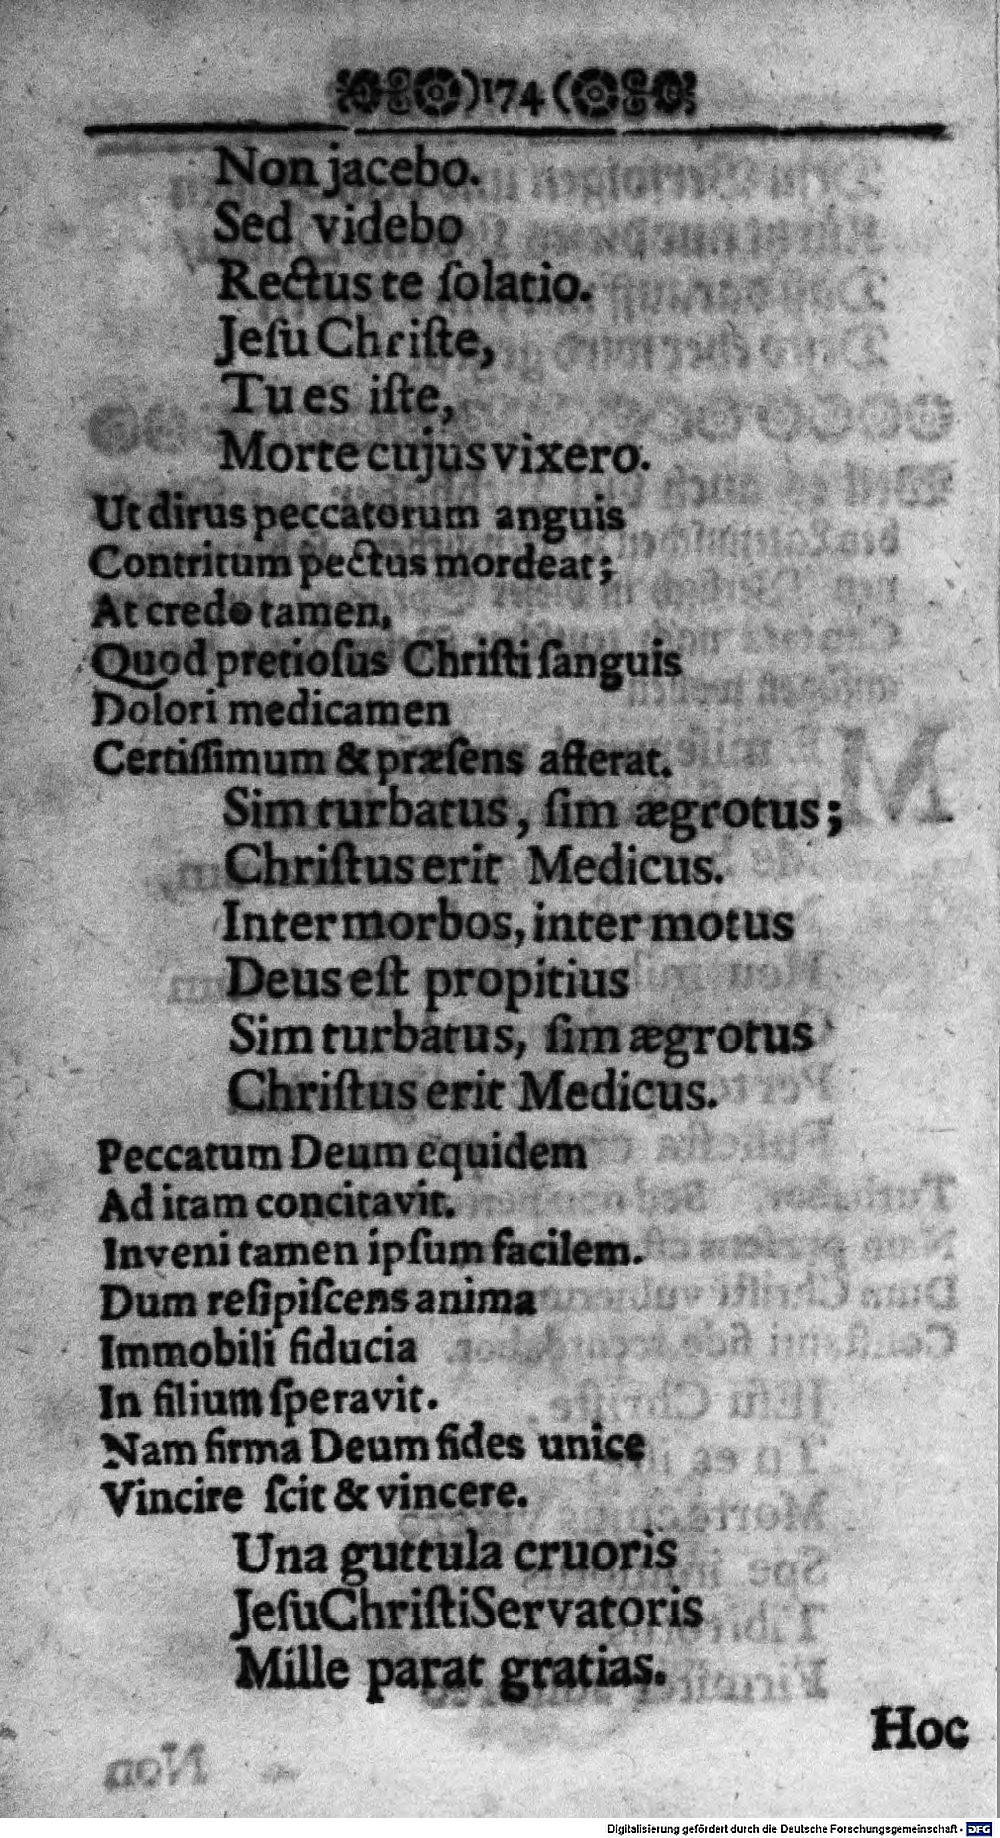 )174(
Non jacebo.
Sed videbo
Rectus te ſolatio.
Jeſu Chriſte,
Tu es iſte,
Morte cujus vixero.
Ut dirus peccatorum anguis
Contritum pectus mordeat;
At credo tamen,
Quod pretioſus Chriſti ſanguis
Dolori medicamen
Certiſſimum & præſens afferat.
Sim turbatus, ſim ægrotus;
Chriſtus erit Medicus.
Inter morbos, inter motus
Deus eſt propitius
Sim turbatus, ſim ægrotus
Chriſtus erit Medicus.
Peccatum Deum equidem
Ad iram concitavit.
Inveni tamen ipſum facilem.
Dum reſipiſcens anima
Immobili fiducia
In filium ſperavit.
Nam firma Deum fides unice
Vincire ſcit & vincere.
Una guttula cruoris
Jeſu Chriſti Servatoris
Mille parat gratias.
Hoc
Digitalisierung gefördert durch die Deutsche Forschungsgemeinschaft - DFG